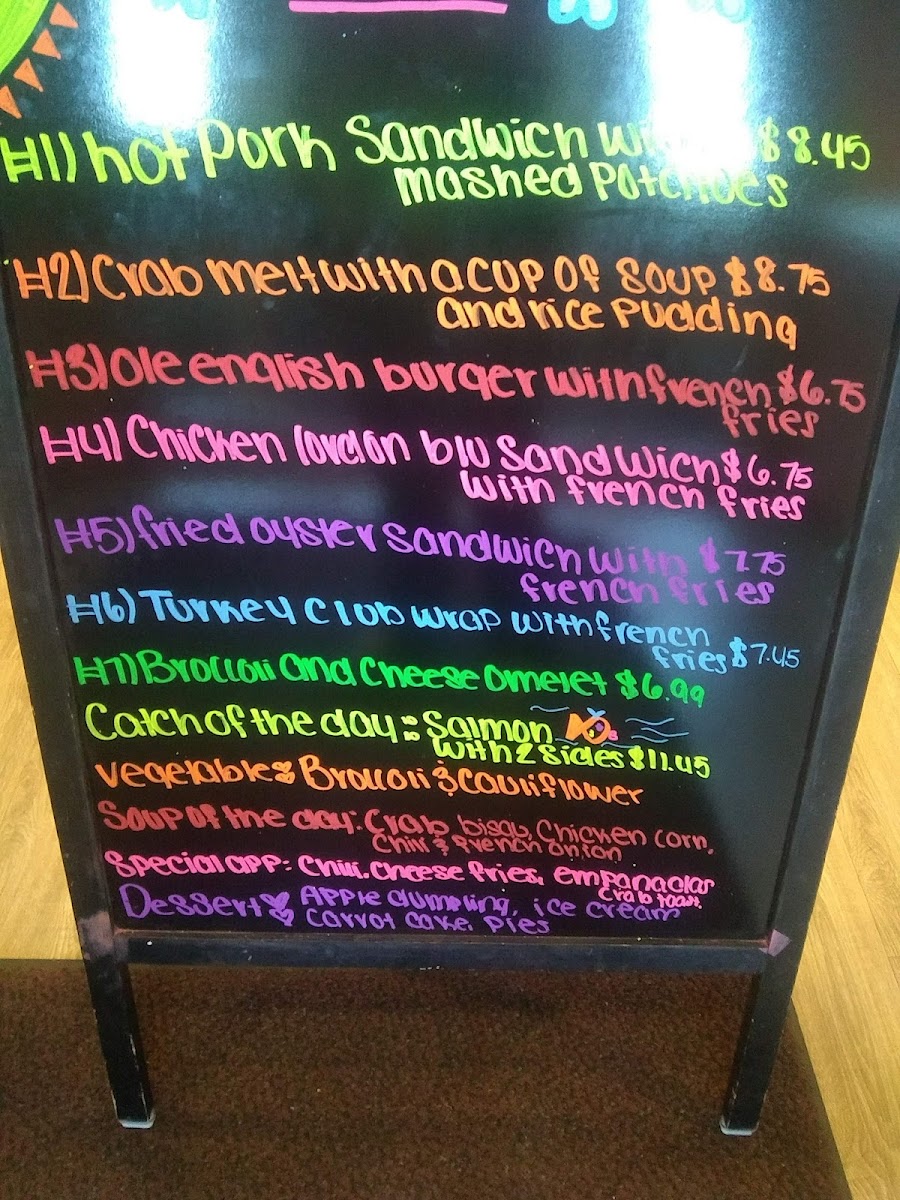 #1) hot Pork Sandwich $8.45
mashed Potatoes
#2) Crab melt with a cup of soup $8.75
and rice pudding
#3) Ole english burger with french $6.75
fries
#4) Chicken Cordon blu Sandwich $6.75
with french fries
#5) fried oyster sandwich with $7.75
french fries
#6) Turkey Club wrap with french
fries $7.45
#7) Broccoli and Cheese omelet $6.99
Catch of the day: Salmon
with 2 sides $11.45
vegetable: Broccoli & Cauliflower
Soup of the day: Crab bisq, Chicken corn,
Chili & French onion
Special app: Chili cheese fries, empanadas
Crab toast
Dessert: Apple dumpling, ice cream
Carrot cake, pies